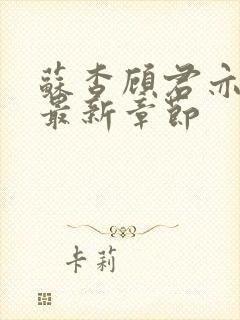 蘇杏顾君亦
最新章節
卡莉